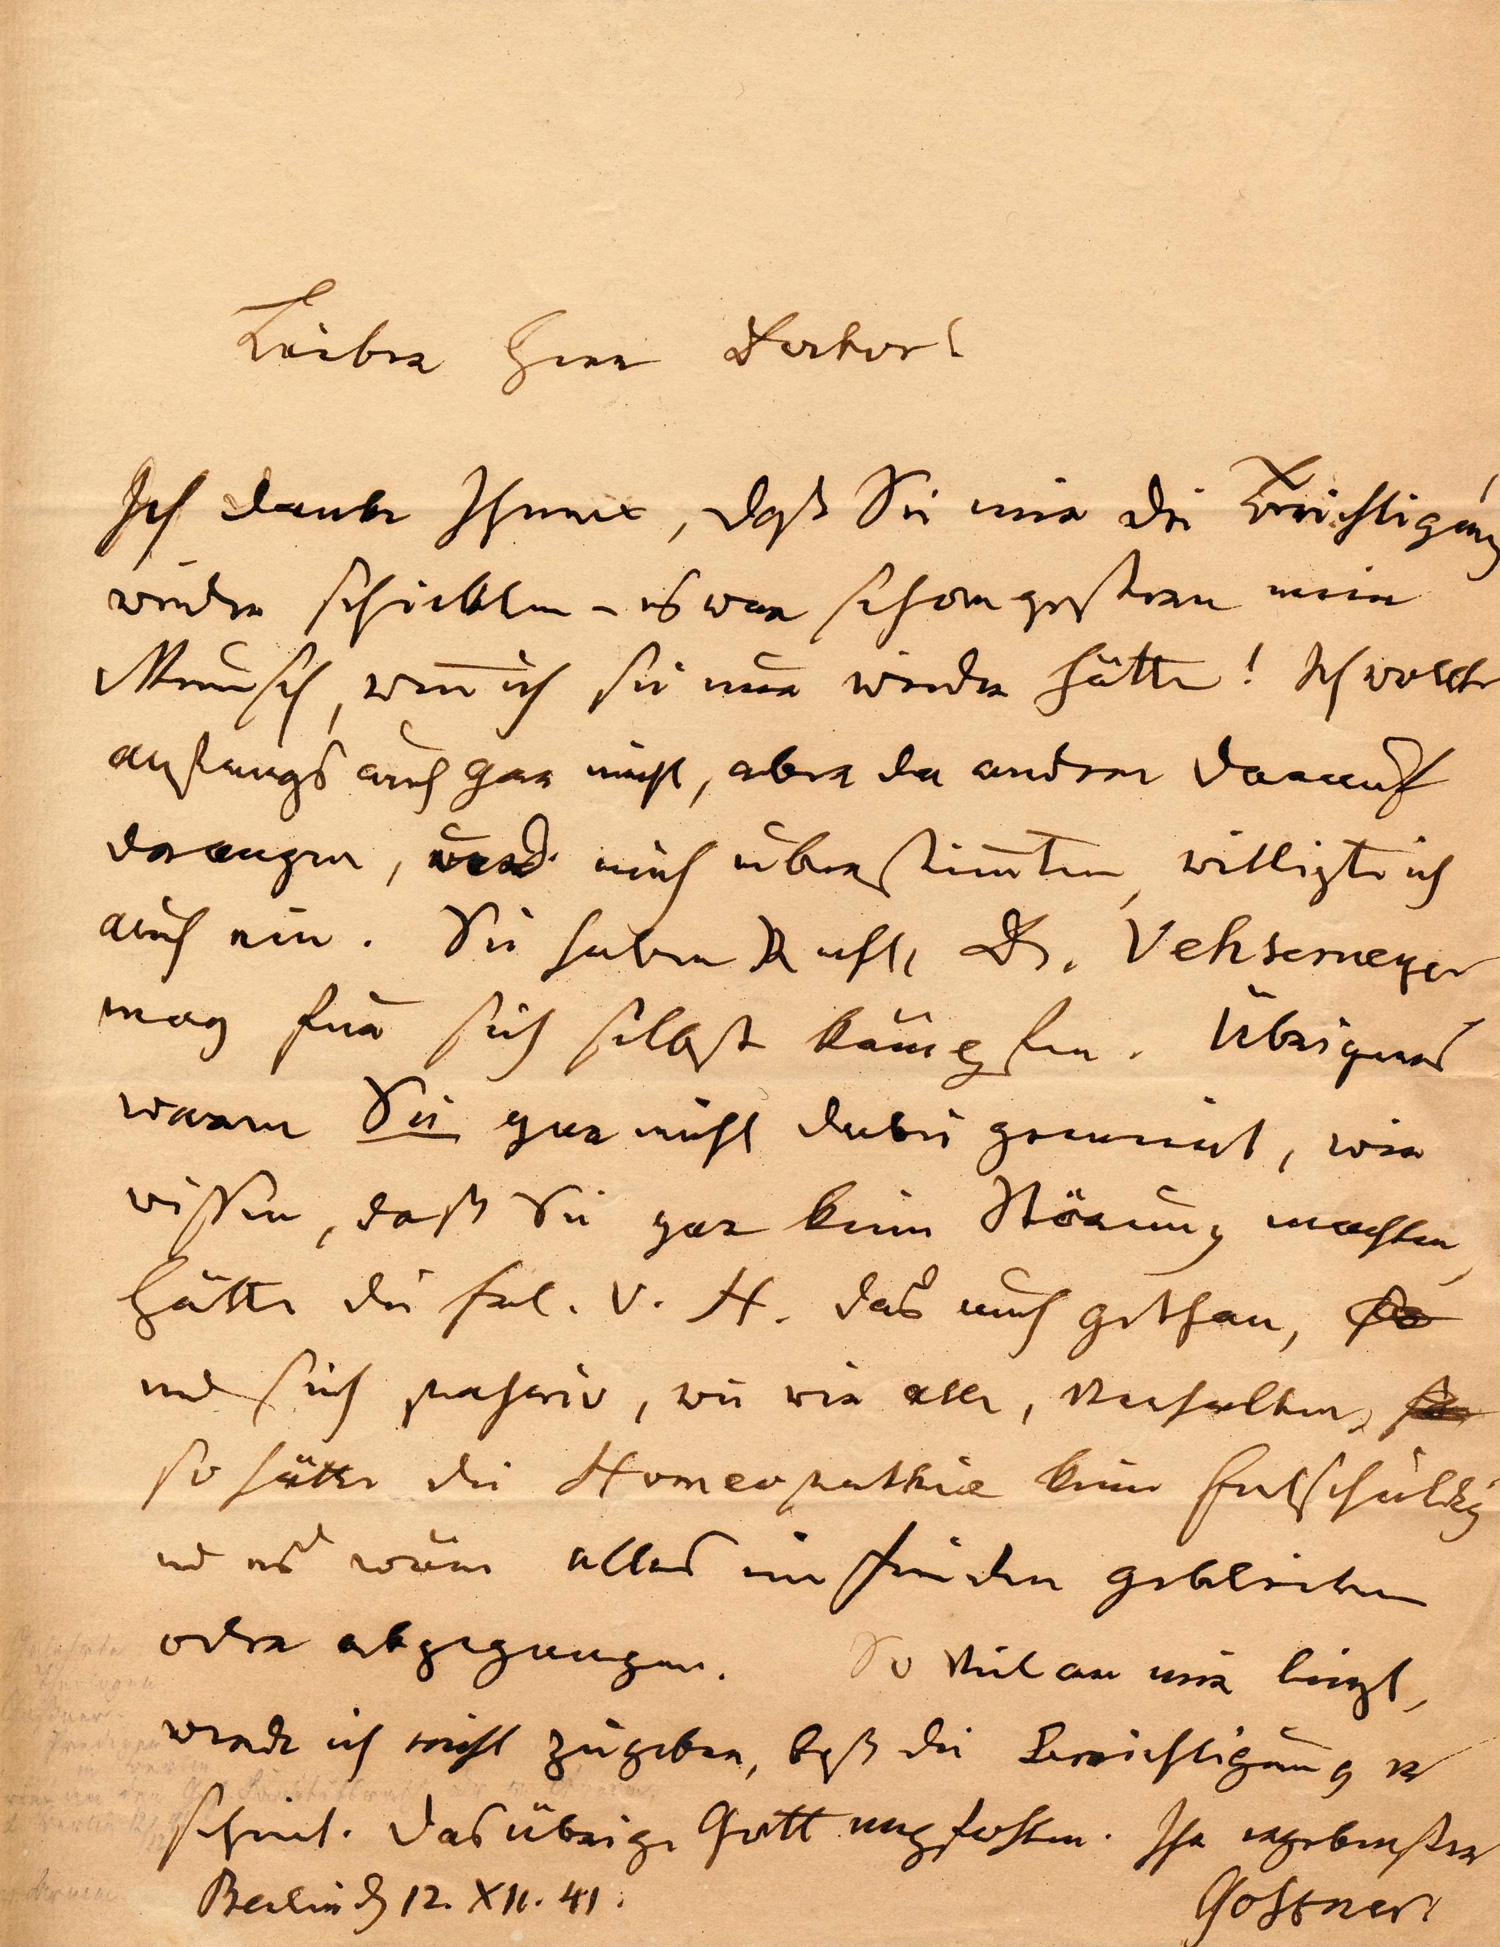 Lieber Herr Doctor!
Ich danke Ihnen, daß Sie mir die Berichtigung
wieder schickten – es war schon gestern mein
Wunsch, wen̄ ich sie nur wieder hätte! Ich wollte
anfangs auch gar nicht, aber da andere darauf
drangen, und mich überstim̄ten, willigte ich
auch ein. Sie haben Recht, Dr. Vehsemeyer
mag für sich selbst kämpfen. Übrigens
waren Sie gar nicht dabei gemeint, wir
wissen, daß Sie gar keine Störung machten,
hätte die frl. v. H. das auch gethan,
und sich passiv, wie wir alle, verhalten,
so hätte die Homeopathie keine
und es wäre alles im Frieden geblieben
oder abgegangen. So viel an mir liegt,
werde ich nicht zugeben, daß die Berichtigung er
scheint. Das übrige Gott empfohlen. Ihr ergebenster
Berlin d 12. XII. 41. Goßner.